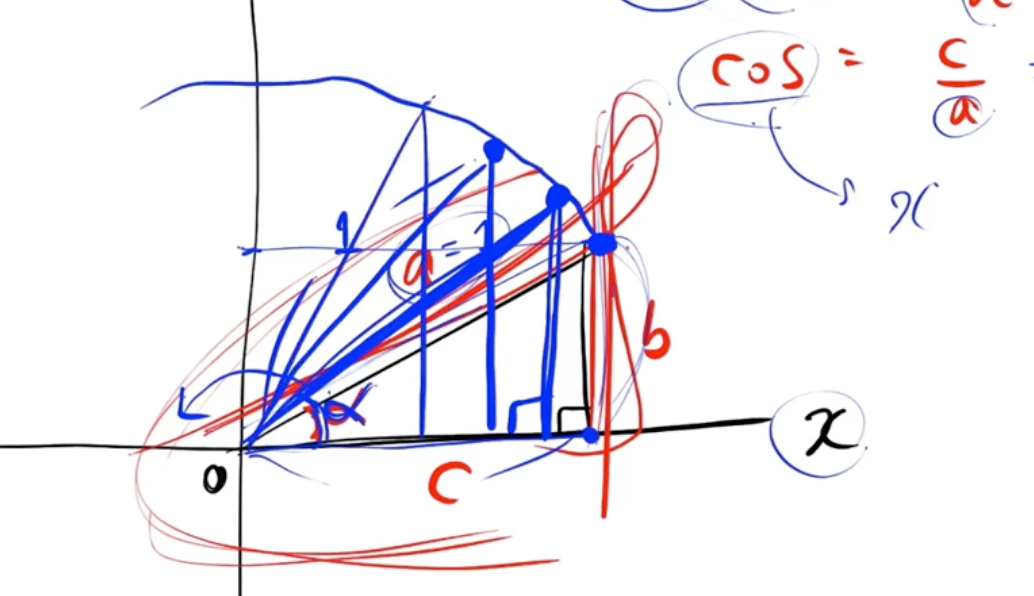 cos = c/a
x
1
a = 1
b
α
x
0
c